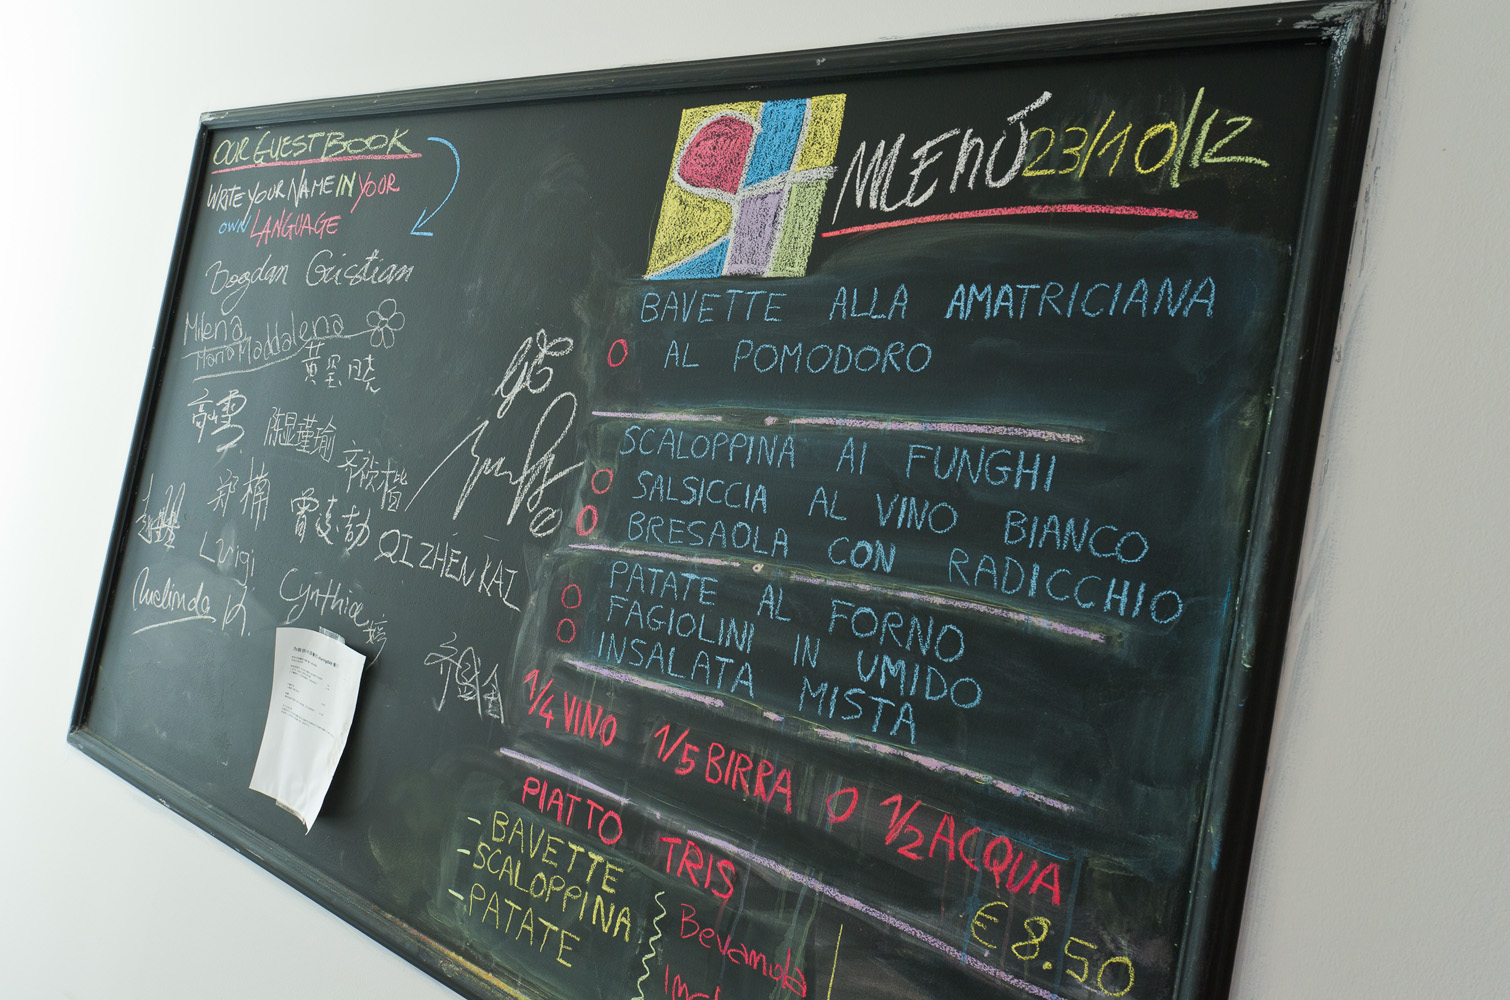 OUR GUEST BOOK
WRITE YOUR NAME IN YOUR
OWN LANGUAGE
Bogdan Cristian
Milena
Maria Maddalena
高雪
陈显瑾瑜
齐欣楷
郑楠
QI ZHEN KAI
Luigi
Cynthia
MENÚ 23/10/12
BAVETTE ALLA AMATRICIANA
O AL POMODORO
SCALOPPINA AI FUNGHI
O SALSICCIA AL VINO BIANCO
O BRESAOLA CON RADICCHIO
PATATE AL FORNO
O FAGIOLINI IN UMIDO
O INSALATA MISTA
1/4 VINO 1/5 BIRRA O 1/2 ACQUA
€ 8.50
PIATTO TRIS
- BAVETTE
- SCALOPPINA
- PATATE
Bevanda